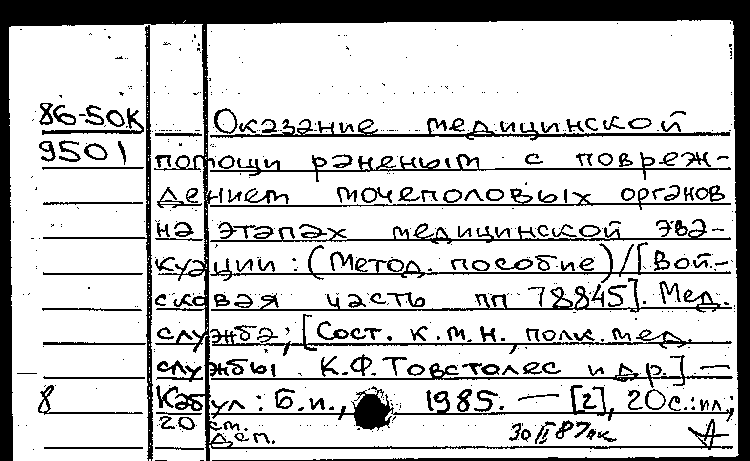 86-50К Оказание медицинской
9501 помощи раненым с повреж-
дением мочеполовых органов
на этапах медицинской эва-
куации : (Метод. пособие) / [Вой-
сковая часть пп 78845]. Мед.
служба; [Сост. к.м.н., полк. мед.
службы К.Ф. Товстолес и др.] —
8 Кабул : Б.и., 1985. — [2], 20 с.: ил.;
20 см.
Деп. 30 II 87